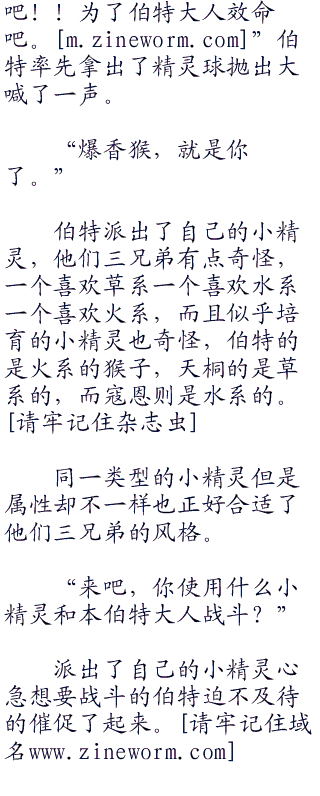 吧！！为了伯特大人效命
吧。[m.zineworm.com]”伯
特率先拿出了精灵球抛出大
喊了一声。
“爆香猴，就是你
了。”
伯特派出了自己的小精
灵，他们三兄弟有点奇怪，
一个喜欢草系一个喜欢水系
一个喜欢火系，而且似乎培
育的小精灵也奇怪，伯特的
是火系的猴子，天桐的是草
系的，而寇恩则是水系的。
[请牢记住杂志虫]
同一类型的小精灵但是
属性却不一样也正好合适了
他们三兄弟的风格。
“来吧，你使用什么小
精灵和本伯特大人战斗？”
派出了自己的小精灵心
急想要战斗的伯特迫不及待
的催促了起来。[请牢记住域
名www.zineworm.com]